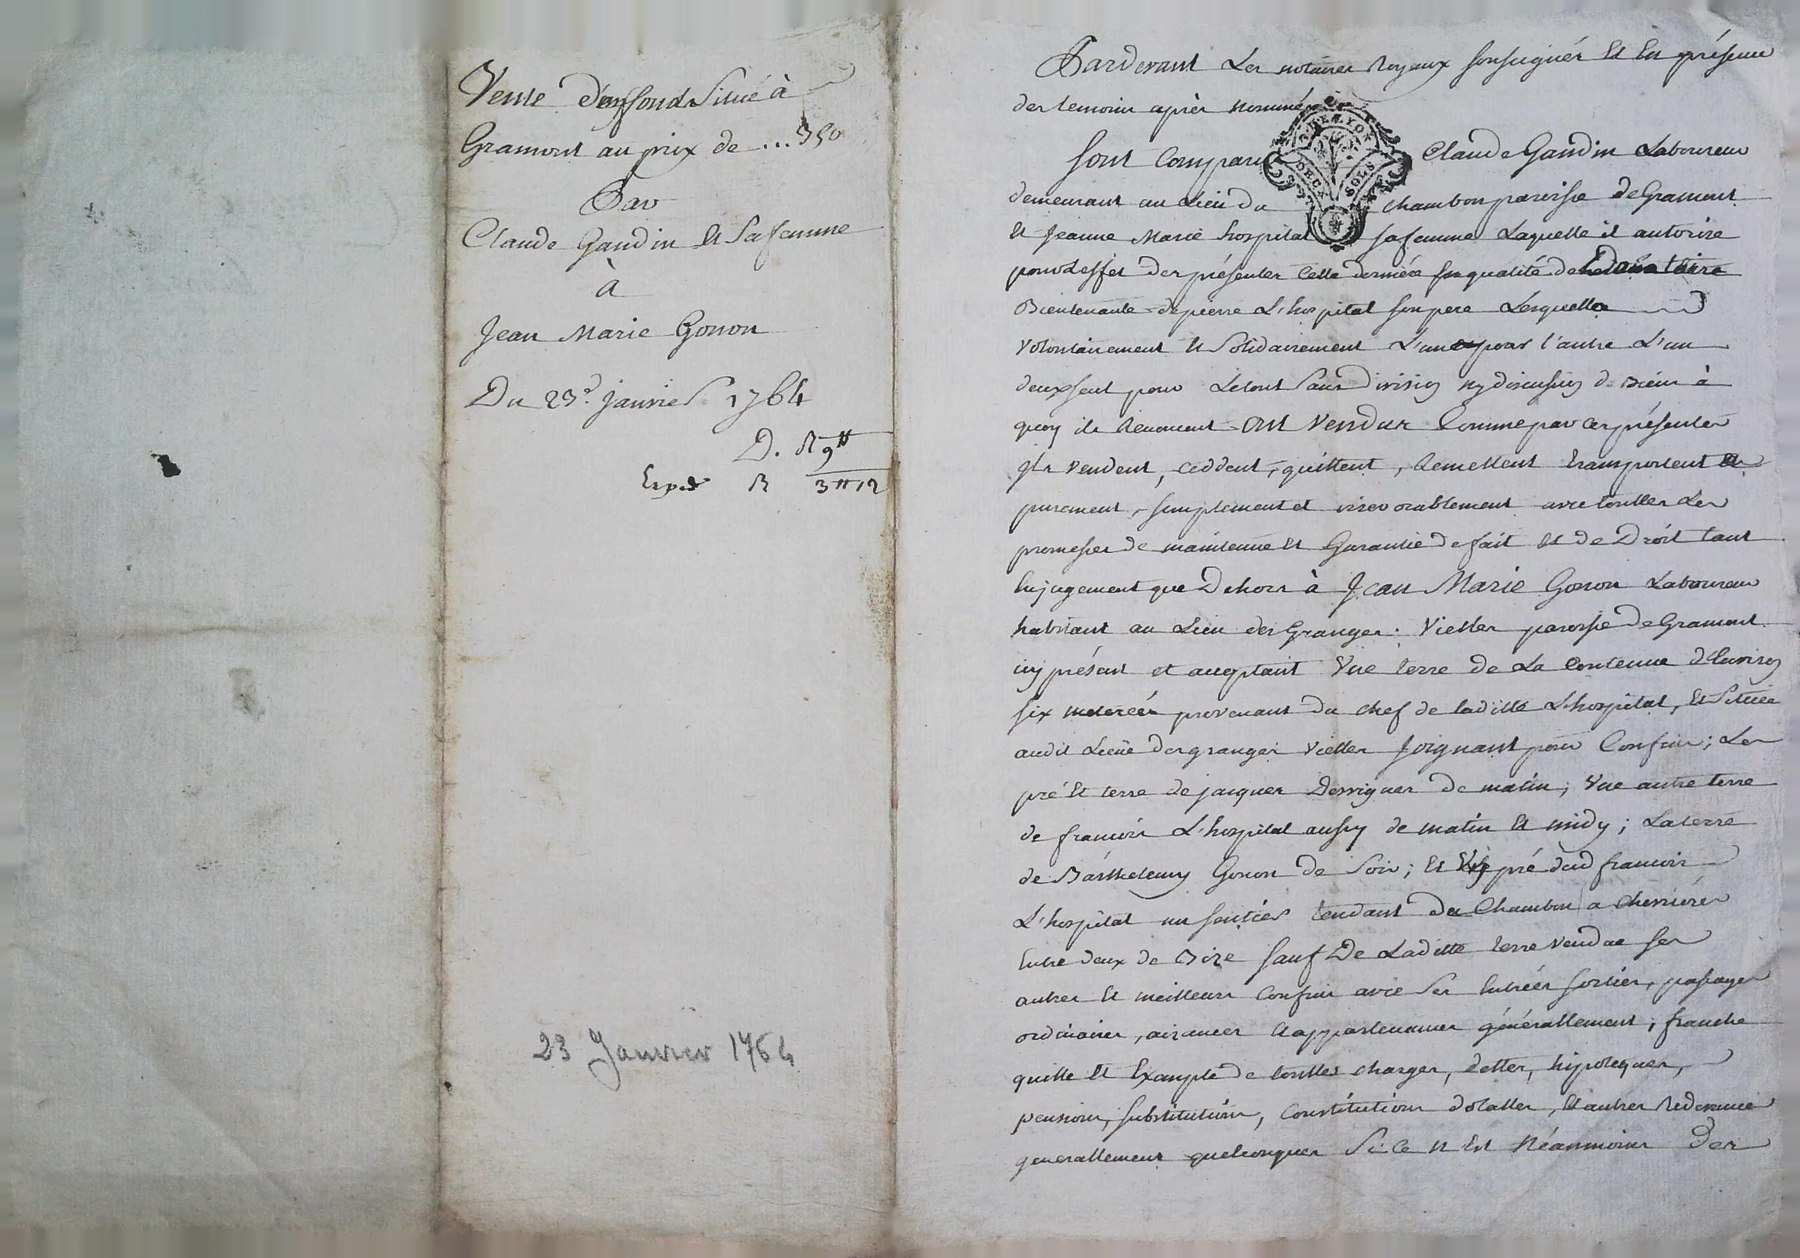 Vente d'un fonds Situé à
Gramont au prix de ... 350
Par
Claude Gaudin Et Sa femme
à
Jean Marie Gonon
Du 23e. janvier 1764
D. R 9tt
Exped R 3tt12
23 Janvier 1764
Pardevant Les notaires Royaux soussignés Et En présence
des temoins après nommés
GNE LYON
DEUX SOLS
Sont Comparu Claude Gaudin Laboureur
demeurant au Lieu du Chambon paroisse de Gramont
Et Jeanne Marie hospital sa femme Laquelle il autorise
pour Leffet des présentes Cette derniere En qualité de Donataire
Bientenante de pierre L'hospital son pere Lesquelles
volontairement Et Solidairement L'un pour l'autre L'un
deux seul pour Letout Sans division ny discussion de Biens à
quoy ils Renoncent Ont Vendus Comme par ces présentes
Ils Vendent, Ceddent, quittent, Remettent transportent
purement, simplement et irrevocablement avec touttes Les
promesses de maintenue Et Garantie de fait Et de Droit tant
En jugement que Dehors à Jean Marie Gonon Laboureur
habitant au Lieu des Granges Vielles paroisse de Gramont
icy présent et acceptant Une terre de La Contenue d'Environ
six meterées provenant du chef de laditte L'hospital, Et Située
audit Lieu des granges vielles Joignant pour Confins; Les
pré Et terre de jacques Dessignes de matin; Une autre terre
de francois L'hospital aussy de matin Et midy; La terre
de Barthelemy Gonon de Soir; Et pré dud francois
L'hospital un sentier tendant du Chambon a Chevrières
Entre deux de Bize sauf De Laditte terre vendue ses
autres Et meilleurs Confins avec Ses Entrées sorties, passages
ordinaires, aisances Et appartenances générallement; franche
quitte Et Exempte de touttes charges, dettes, hipoteques,
pensions, substitutions, Constitutions dotalles, Et autres Redevances
generallement quelconques Si Ce n'Est Néanmoins Des